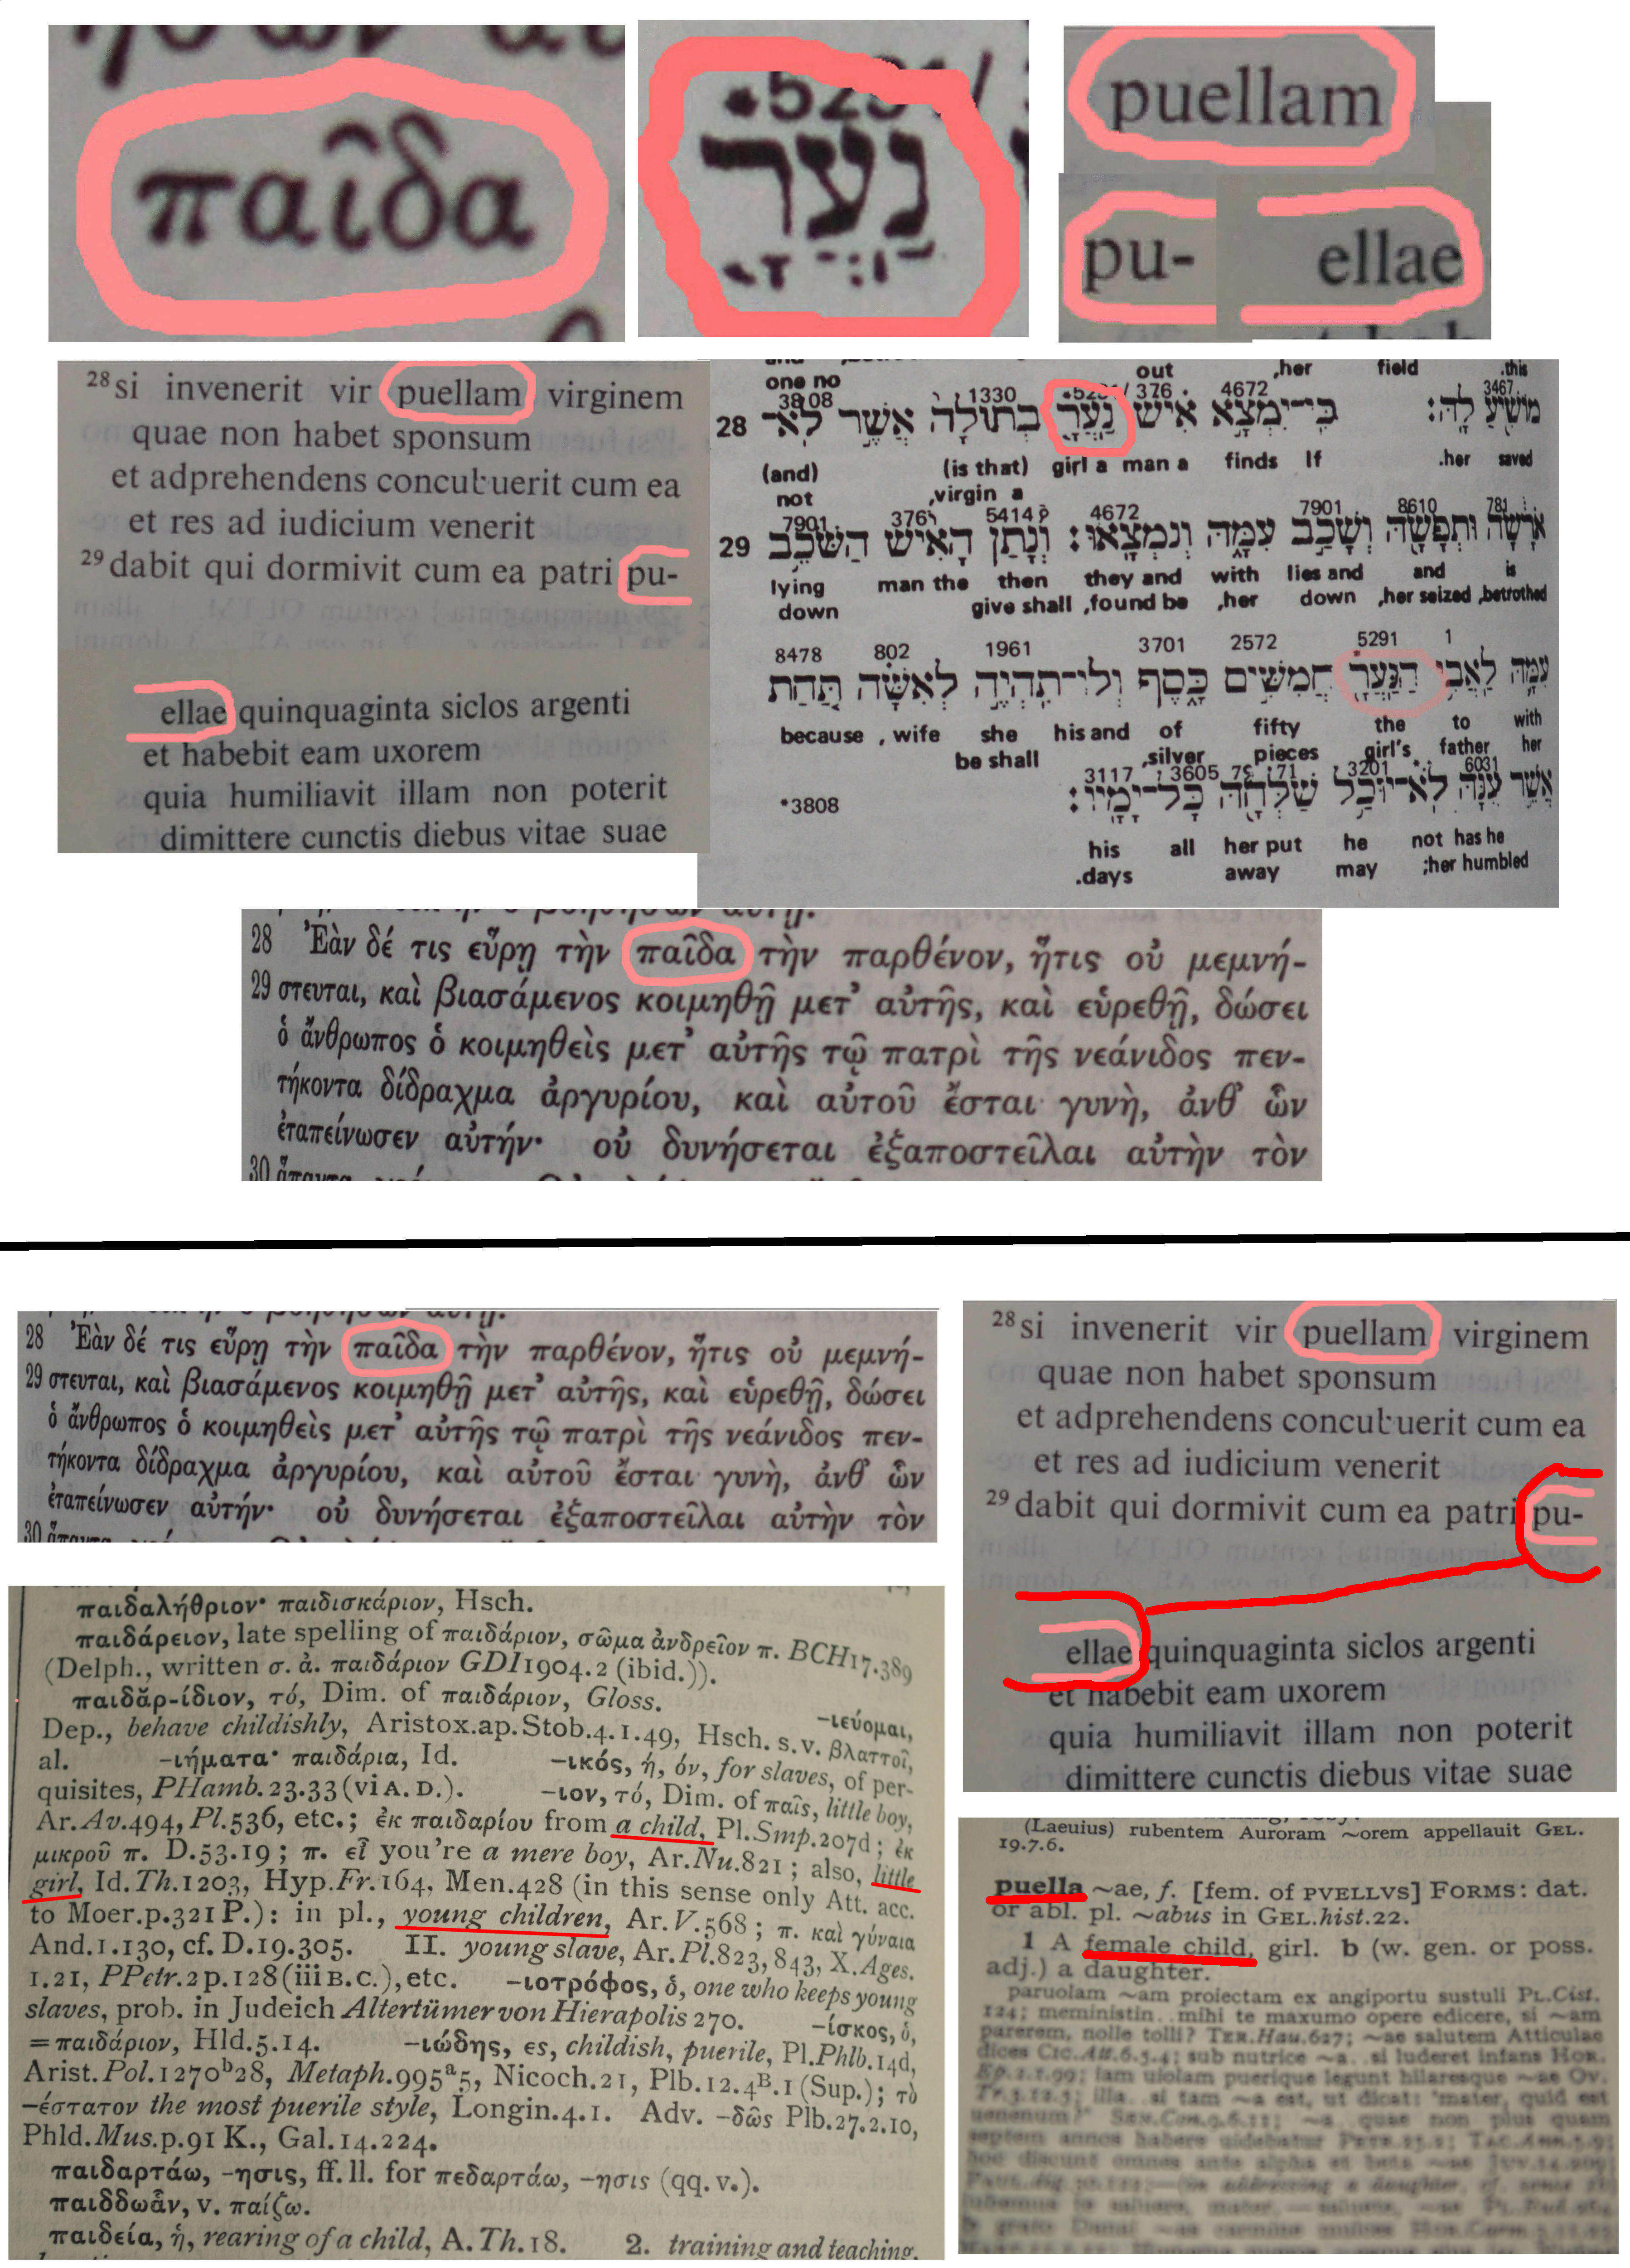 παῖδα
נַעֲרָ
puellam
pu- ellae
28 si invenerit vir puellam virginem
quae non habet sponsum
et adprehendens concubuerit cum ea
et res ad iudicium venerit
29 dabit qui dormivit cum ea patri pu-
ellae quinquaginta siclos argenti
et habebit eam uxorem
quia humiliavit illam non poterit
dimittere cunctis diebus vitae suae
out ,her field .this
one no
3808 1330 376 4672 3467
28 מוֹשִׁיעַ לָהּ: כִּי־יִמְצָא אִישׁ נַעֲרָ בְתוּלָה אֲשֶׁר לֹא־
(and) (is that) girl a man a finds If .her saved
not ,virgin a
7901 376 5414 4672 7901 8610 781
29 אֹרָשָׂה וּתְפָשָׂהּ וְשָׁכַב עִמָּהּ וְנִמְצָאוּ: וְנָתַן הָאִישׁ הַשֹּׁכֵב
lying man the then they and with lies and and is
down give shall ,found be ,her down ,her seized ,betrothed
8478 802 1961 3701 2572 5291 1
עִמָּהּ לַאֲבִי הַנַּעֲרָ חֲמִשִּׁים כָּסֶף וְלוֹ־תִהְיֶה לְאִשָּׁה תַּחַת
because , wife she his and of fifty the to with
be shall ,silver pieces girl's father her
3117 3605 71 3201 6031
*3808 אֲשֶׁר עִנָּהּ לֹא־יוּכַל שַׁלְּחָהּ כָּל־יָמָיו:
his all her put he not has he
.days away may ;her humbled
28 Ἐὰν δέ τις εὕρῃ τὴν παῖδα τὴν παρθένον, ἥτις οὐ μεμνή-
29 στευται, καὶ βιασάμενος κοιμηθῇ μετ᾽ αὐτῆς, καὶ εὑρεθῇ, δώσει
ὁ ἄνθρωπος ὁ κοιμηθεὶς μετ᾽ αὐτῆς τῷ πατρὶ τῆς νεάνιδος πεν-
τήκοντα δίδραχμα ἀργυρίου, καὶ αὐτοῦ ἔσται γυνὴ, ἀνθ᾽ ὧν
ἐταπείνωσεν αὐτήν· οὐ δυνήσεται ἐξαποστεῖλαι αὐτὴν τὸν
30
28 Ἐὰν δέ τις εὕρῃ τὴν παῖδα τὴν παρθένον, ἥτις οὐ μεμνή-
29 στευται, καὶ βιασάμενος κοιμηθῇ μετ᾽ αὐτῆς, καὶ εὑρεθῇ, δώσει
ὁ ἄνθρωπος ὁ κοιμηθεὶς μετ᾽ αὐτῆς τῷ πατρὶ τῆς νεάνιδος πεν-
τήκοντα δίδραχμα ἀργυρίου, καὶ αὐτοῦ ἔσται γυνὴ, ἀνθ᾽ ὧν
ἐταπείνωσεν αὐτήν· οὐ δυνήσεται ἐξαποστεῖλαι αὐτὴν τὸν
30
28 si invenerit vir puellam virginem
quae non habet sponsum
et adprehendens concubuerit cum ea
et res ad iudicium venerit
29 dabit qui dormivit cum ea patri pu-
ellae quinquaginta siclos argenti
et habebit eam uxorem
quia humiliavit illam non poterit
dimittere cunctis diebus vitae suae
παιδαλήθριον· παιδισκάριον, Hsch.
παιδάρειον, late spelling of παιδάριον, σῶμα ἀνδρεῖον π. BCH17.389
(Delph., written σ. ἀ. παιδάριον GDI1904.2 (ibid.)).
παιδᾰρ-ίδιον, τό, Dim. of παιδάριον, Gloss. -ιεύομαι,
Dep., behave childishly, Aristox.ap.Stob.4.1.49, Hsch. s.v. βλαττοῖ,
al. -ιήματα· παιδάρια, Id. -ικός, ή, όν, for slaves, of per-
quisites, PHamb.23.33(vi A.D.). -ιον, τό, Dim. of παῖς, little boy,
Ar.Av.494, Pl.536, etc.; ἐκ παιδαρίου from a child, Pl.Smp.207d; ἐκ
μικροῦ π. D.53.19; π. εἶ you're a mere boy, Ar.Nu.821; also, little
girl, Id.Th.1203, Hyp.Fr.164, Men.428 (in this sense only Att. acc.
to Moer.p.321 P.): in pl., young children, Ar.V.568; π. καὶ γύναια
And.1.130, cf. D.19.305. II. young slave, Ar.Pl.823, 843, X.Ages.
1.21, PPetr.2p.128(iii B.C.), etc. -ιοτρόφος, ὁ, one who keeps young
slaves, prob. in Judeich Altertümer von Hierapolis 270. -ίσκος, ὁ,
=παιδάριον, Hld.5.14. -ιώδης, ες, childish, puerile, Pl.Phlb.14d,
Arist.Pol.1270b28, Metaph.995a5, Nicoch.21, Plb.12.4B.1 (Sup.); τὸ
-έστατον the most puerile style, Longin.4.1. Adv. -δῶς Plb.27.2.10,
Phld.Mus.p.91 K., Gal.14.224.
παιδαρτάω, -ησις, ff. ll. for πεδαρτάω, -ησις (qq. v.).
παιδδωᾶν, v. παίζω.
παιδεία, ἡ, rearing of a child, A.Th.18. 2. training and teaching,
(Laeuius) rubentem Auroram ~orem appellauit GEL.
19.7.6.
puella ~ae, f. [fem. of PVELLVS] FORMS: dat.
or abl. pl. ~abus in GEL.hist.22.
1 A female child, girl. b (w. gen. or poss.
adj.) a daughter.
paruolam ~am proiectam ex angiportu sustuli PL.Cist.
124; meministin.. mihi te maxumo opere edicere, si ~am
parerem, nolle tolli? TER.Hau.627; ~ae salutem Atticulae
dices CIC.Att.6.5.4; sub nutrice ~a.. si luderet infans HOR.